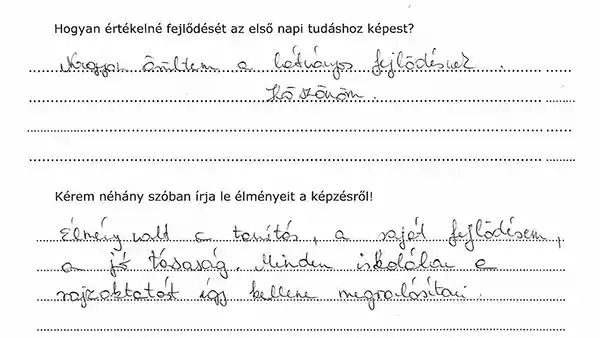 Hogyan értékelné fejlődését az első napi tudáshoz képest?
Nagyon örültem a látványos fejlődésnek.
Köszönöm.
Kérem néhány szóban írja le élményeit a képzésről!
Élmény volt a tanítás, a saját fejlődésem,
a jó társaság. Minden iskolában a
rajzoktatást így kellene megvalósítani.